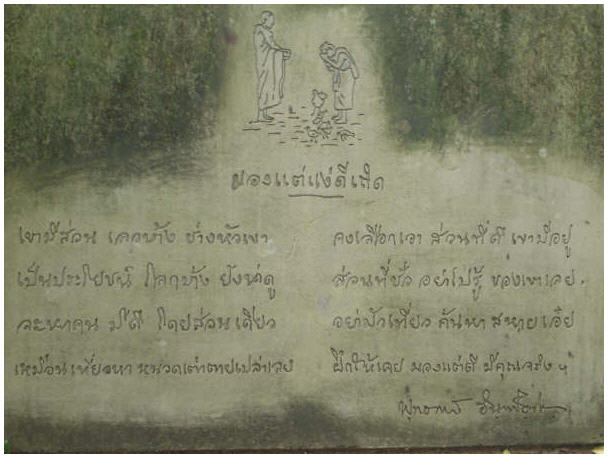 มองแต่แง่ดีเถิด
เขามีส่วน เลวบ้าง ช่างหัวเขา จงเลือกเอา ส่วนที่ดี เขามีอยู่
เป็นประโยชน์ โลกบ้าง ยังน่าดู ส่วนที่ชั่ว อย่าไปรู้ ของเขาเลย.
จะหาคน มีดี โดยส่วนเดียว อย่ามัวเที่ยว ค้นหา สหายเอ๋ย
เหมือนเที่ยวหา หนวดเต่าตายเปล่าเลย ฝึกให้เคย มองแต่ดี มีคุณจริง ฯ
พุทธทาส อินทปัญโญ